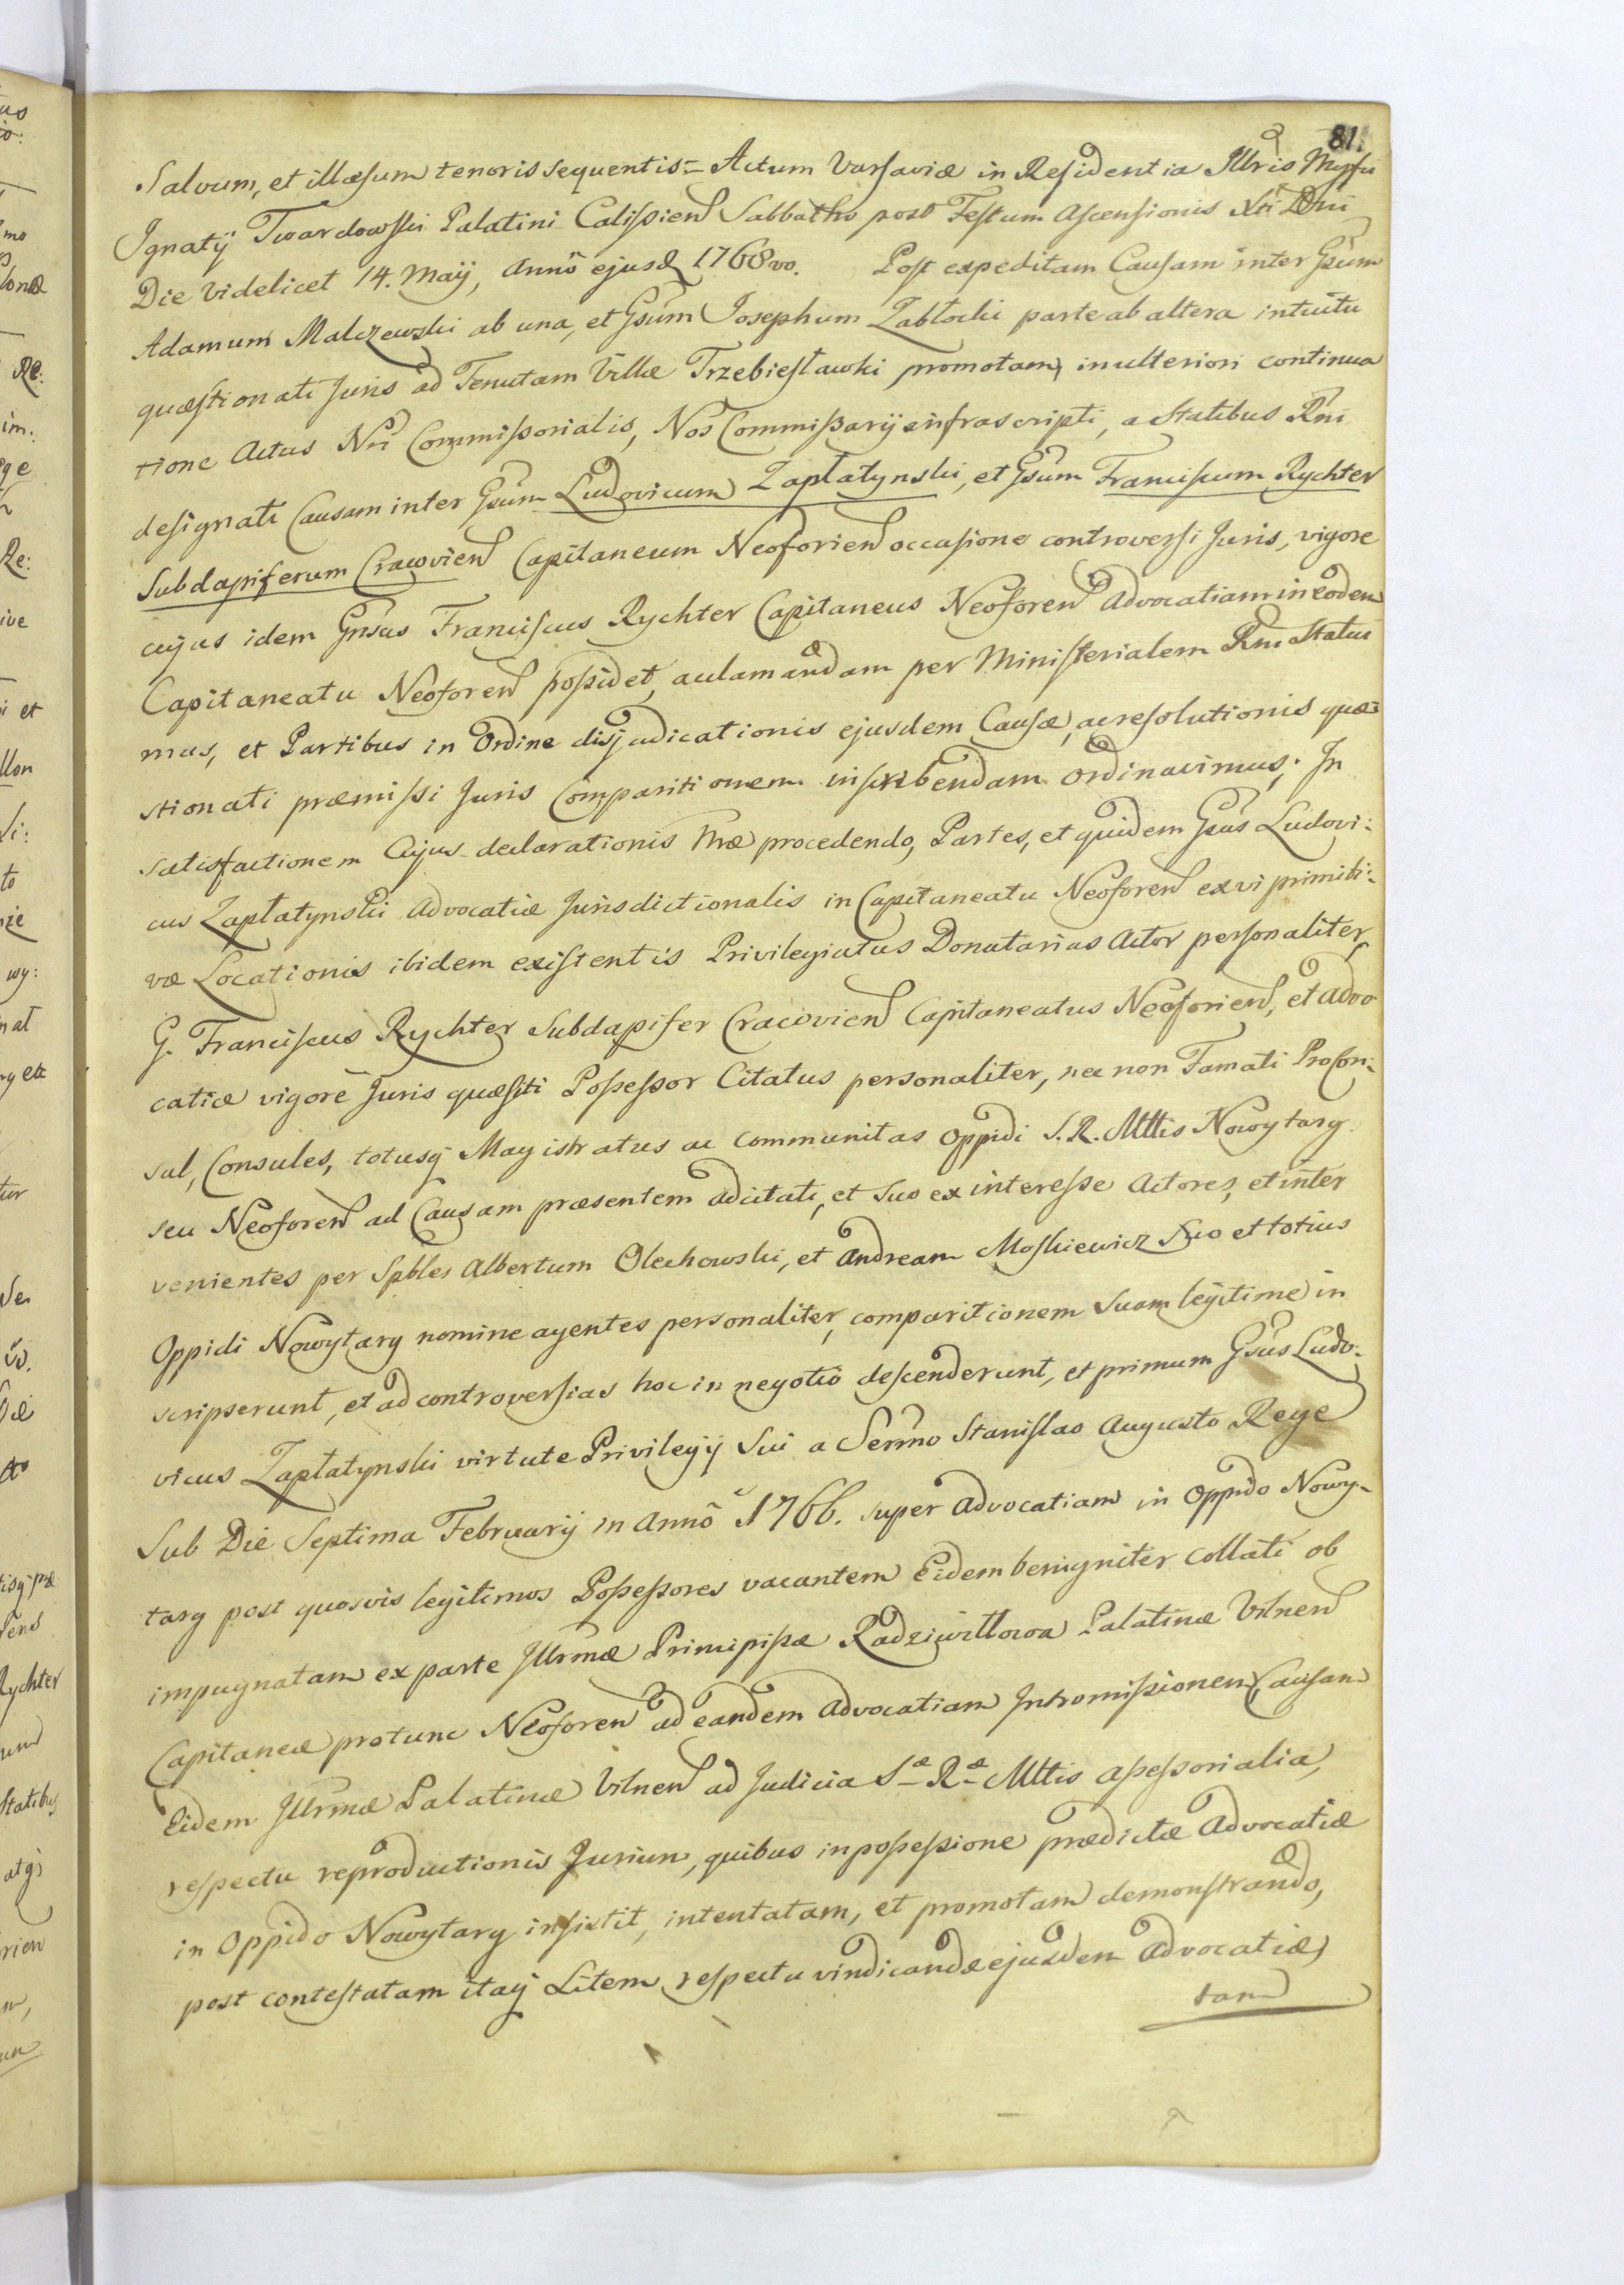 81.
Salvum, et illæsum tenoris sequentis = Actum Varsaviæ in Residentia Illris Mgfci
Ignatij Twardowski Palatini Calissien Sabbatho post Festum Ascensionis Xti Dni
Die videlicet 14. Maÿ, Annô ejusd 1768vo. Post expeditam Causam inter Gsum
Adamum Malczewski ab una, et Gsum Josephum Zabłocki parte ab altera intuitu
quæstionati Juris ad Tenutam Villæ Trzebiesławki promotam, in ulteriori continua
tione Actus Nri Commissorialis, Nos Commissarij infrascripti, a Statibus Rni
designati Causam inter Gsum Ludovicum Zapłatynski, et Gsum Franciscum Rychter
Subdapiferum Cracovien Capitaneum Neoforien occasione controversi Juris, vigore
cujus idem Gnsus Franciscus Rychter Capitaneus Neoforen Advocatiam in eodem
Capitaneatu Neoforen possidet, aclamandam per Ministerialem Rni Statui
mus, et Partibus in Ordine disjudicationis ejusdem Causæ, ac resolutionis quæ=
stionati præmissi Juris Comparitionem inscribendam Ordinavimus; In
satisfactionem Cujus declarationis Nræ procedendo, Partes, et quidem Gsus Ludovi:
cus Zapłatynski Advocatiæ Jurisdictionalis in Capitaneatu Neoforen ex vi primiti:
væ Locationis ibidem existentis Privilegiatus Donatarius Actor personaliter
G. Franciscus Rychter Subdapifer Cracovien Capitaneatus Neoforien, et Advo
catiæ vigore Juris quæsiti Possessor Citatus personaliter, nec non Famati ProCon:
sul, Consules, totusq Magistratus ac Communitas Oppidi S. R. Mttis Nowytarg
seu Neoforen ad Causam præsentem adcitati, et Suo ex interesse Actores, et inter
venientes per Spbles Albertum Olechowski, et Andream Moskiewicz Suo et totius
Oppidi Nowytarg nomine agentes personaliter, comparitionem Suam legitime in
scripserunt, et ad controversias hoc in negotio descenderunt, et primum Gsus Ludo:
vicus Zapłatynski virtute Privilegij Sui a Sermo Stanislao Augusto Rege
Sub Die Septima Februarij in Annô 1766. super Advocatiam in Oppido Nowy-
targ post quosvis legitimos Possessores vacantem Eidem benigniter Collati ob
impugnatam ex parte Illrmæ Principissæ Radziwiłłowa Palatinæ Vilnen
Capitaneæ protunc Neoforen ad eandem Advocatiam Intromissionem, Causam
Eidem Illrmæ Palatinæ Vilnen ad Judicia Sæ Ræ Mttis Assessorialia,
respectu reproductionis Jurium, quibus in possessione prædictæ Advocatiæ
in Oppido Nowytarg insistit, intentatam, et promotam demonstrando,
post contestatam itaq Litem respectu vindicandæ ejusdem Advocatiæ
tam